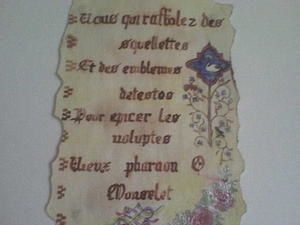 Vous qui raffolez des
squellettes
Et des emblemes
detestes
Pour epicer les
voluptes
Vieux pharaon O
Monselet